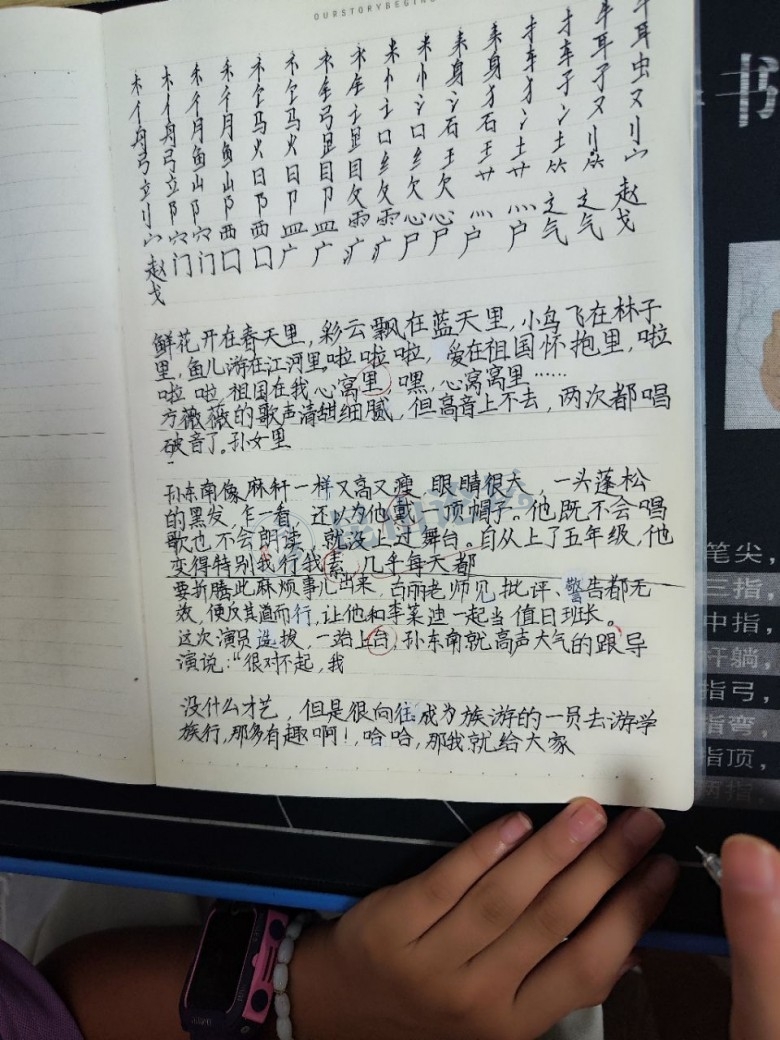 OURSTORYBEGINS
木木禾禾礻礻衤衤米米耒耒扌扌牛牛
亻亻彳彳钅钅钅钅忄巾身身车车耳耳虫
舟舟月月马马弓 氵氵犭犭子孑又又
弓弓鱼鱼火火目目口口石石氵土土刂刂
立立山山日日目目纟纟王王艹艹⺮
刂阝阝阝阝卩卩攵攵欠欠灬灬辶赵
宀穴穴西西皿皿雨雨心心户户气气戈
赵门门囗囗广广疒疒尸尸
戈
鲜花开在春天里,彩云飘在蓝天里,小鸟飞在林子
里,鱼儿游在江河里。啦啦啦,爱在祖国怀抱里,啦
啦啦,祖国在我心窝里,嘿,心窝窝里……
方薇薇的歌声清甜细腻,但高音上不去,两次都唱
破音了。孙女里
孙东南像麻秆一样又高又瘦 眼睛很大,一头蓬松
的黑发,乍一看,还以为他戴一顶帽子。他既不会唱
歌也不会朗读,就没上过舞台。自从上了五年级,他
变得特别我行我素,几乎每天都
要折腾些麻烦事儿出来,古丽老师见批评、警告都无
效,便反其道而行,让他和李菜迪一起当值日班长。
这次演员选拔,一站上台,孙东南就高声大气的跟导
演说:“很对不起,我
没什么才艺,但是很向往成为旅游的一员去游学
旅行,那多有趣啊!,哈哈,那我就给大家
书
笔尖,
三指,
中指,
杆躺,
指弓,
指弯,
指顶,